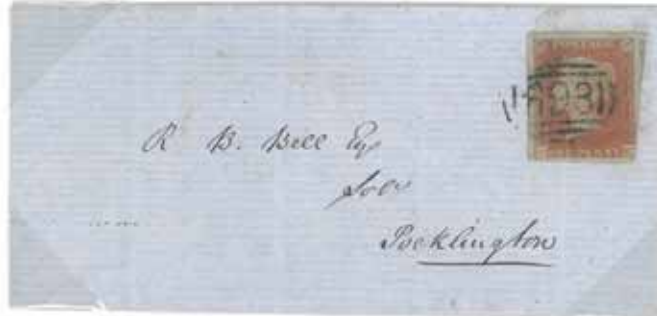 R. B. Bell Esq
Solr
Pocklington